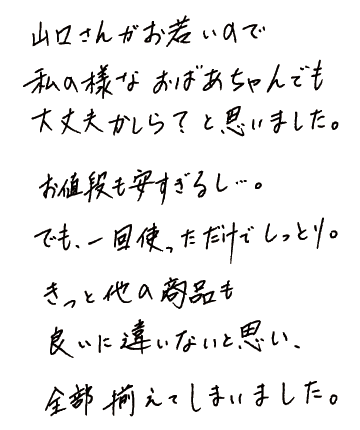 山口さんがお若いので
私の様な おばあちゃんでも
大丈夫かしら?と思いました。
お値段も安すぎるし…。
でも、一回使っただけでしっとり。
きっと他の商品も
良いに違いないと思い、
全部揃えてしまいました。